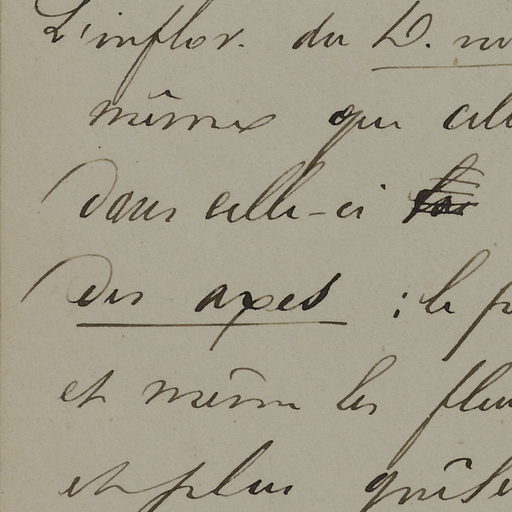 L'inflor. du D. m
même que cel
Dans celle-ci
Des axes : le p
et même les fleu
et plus grêle